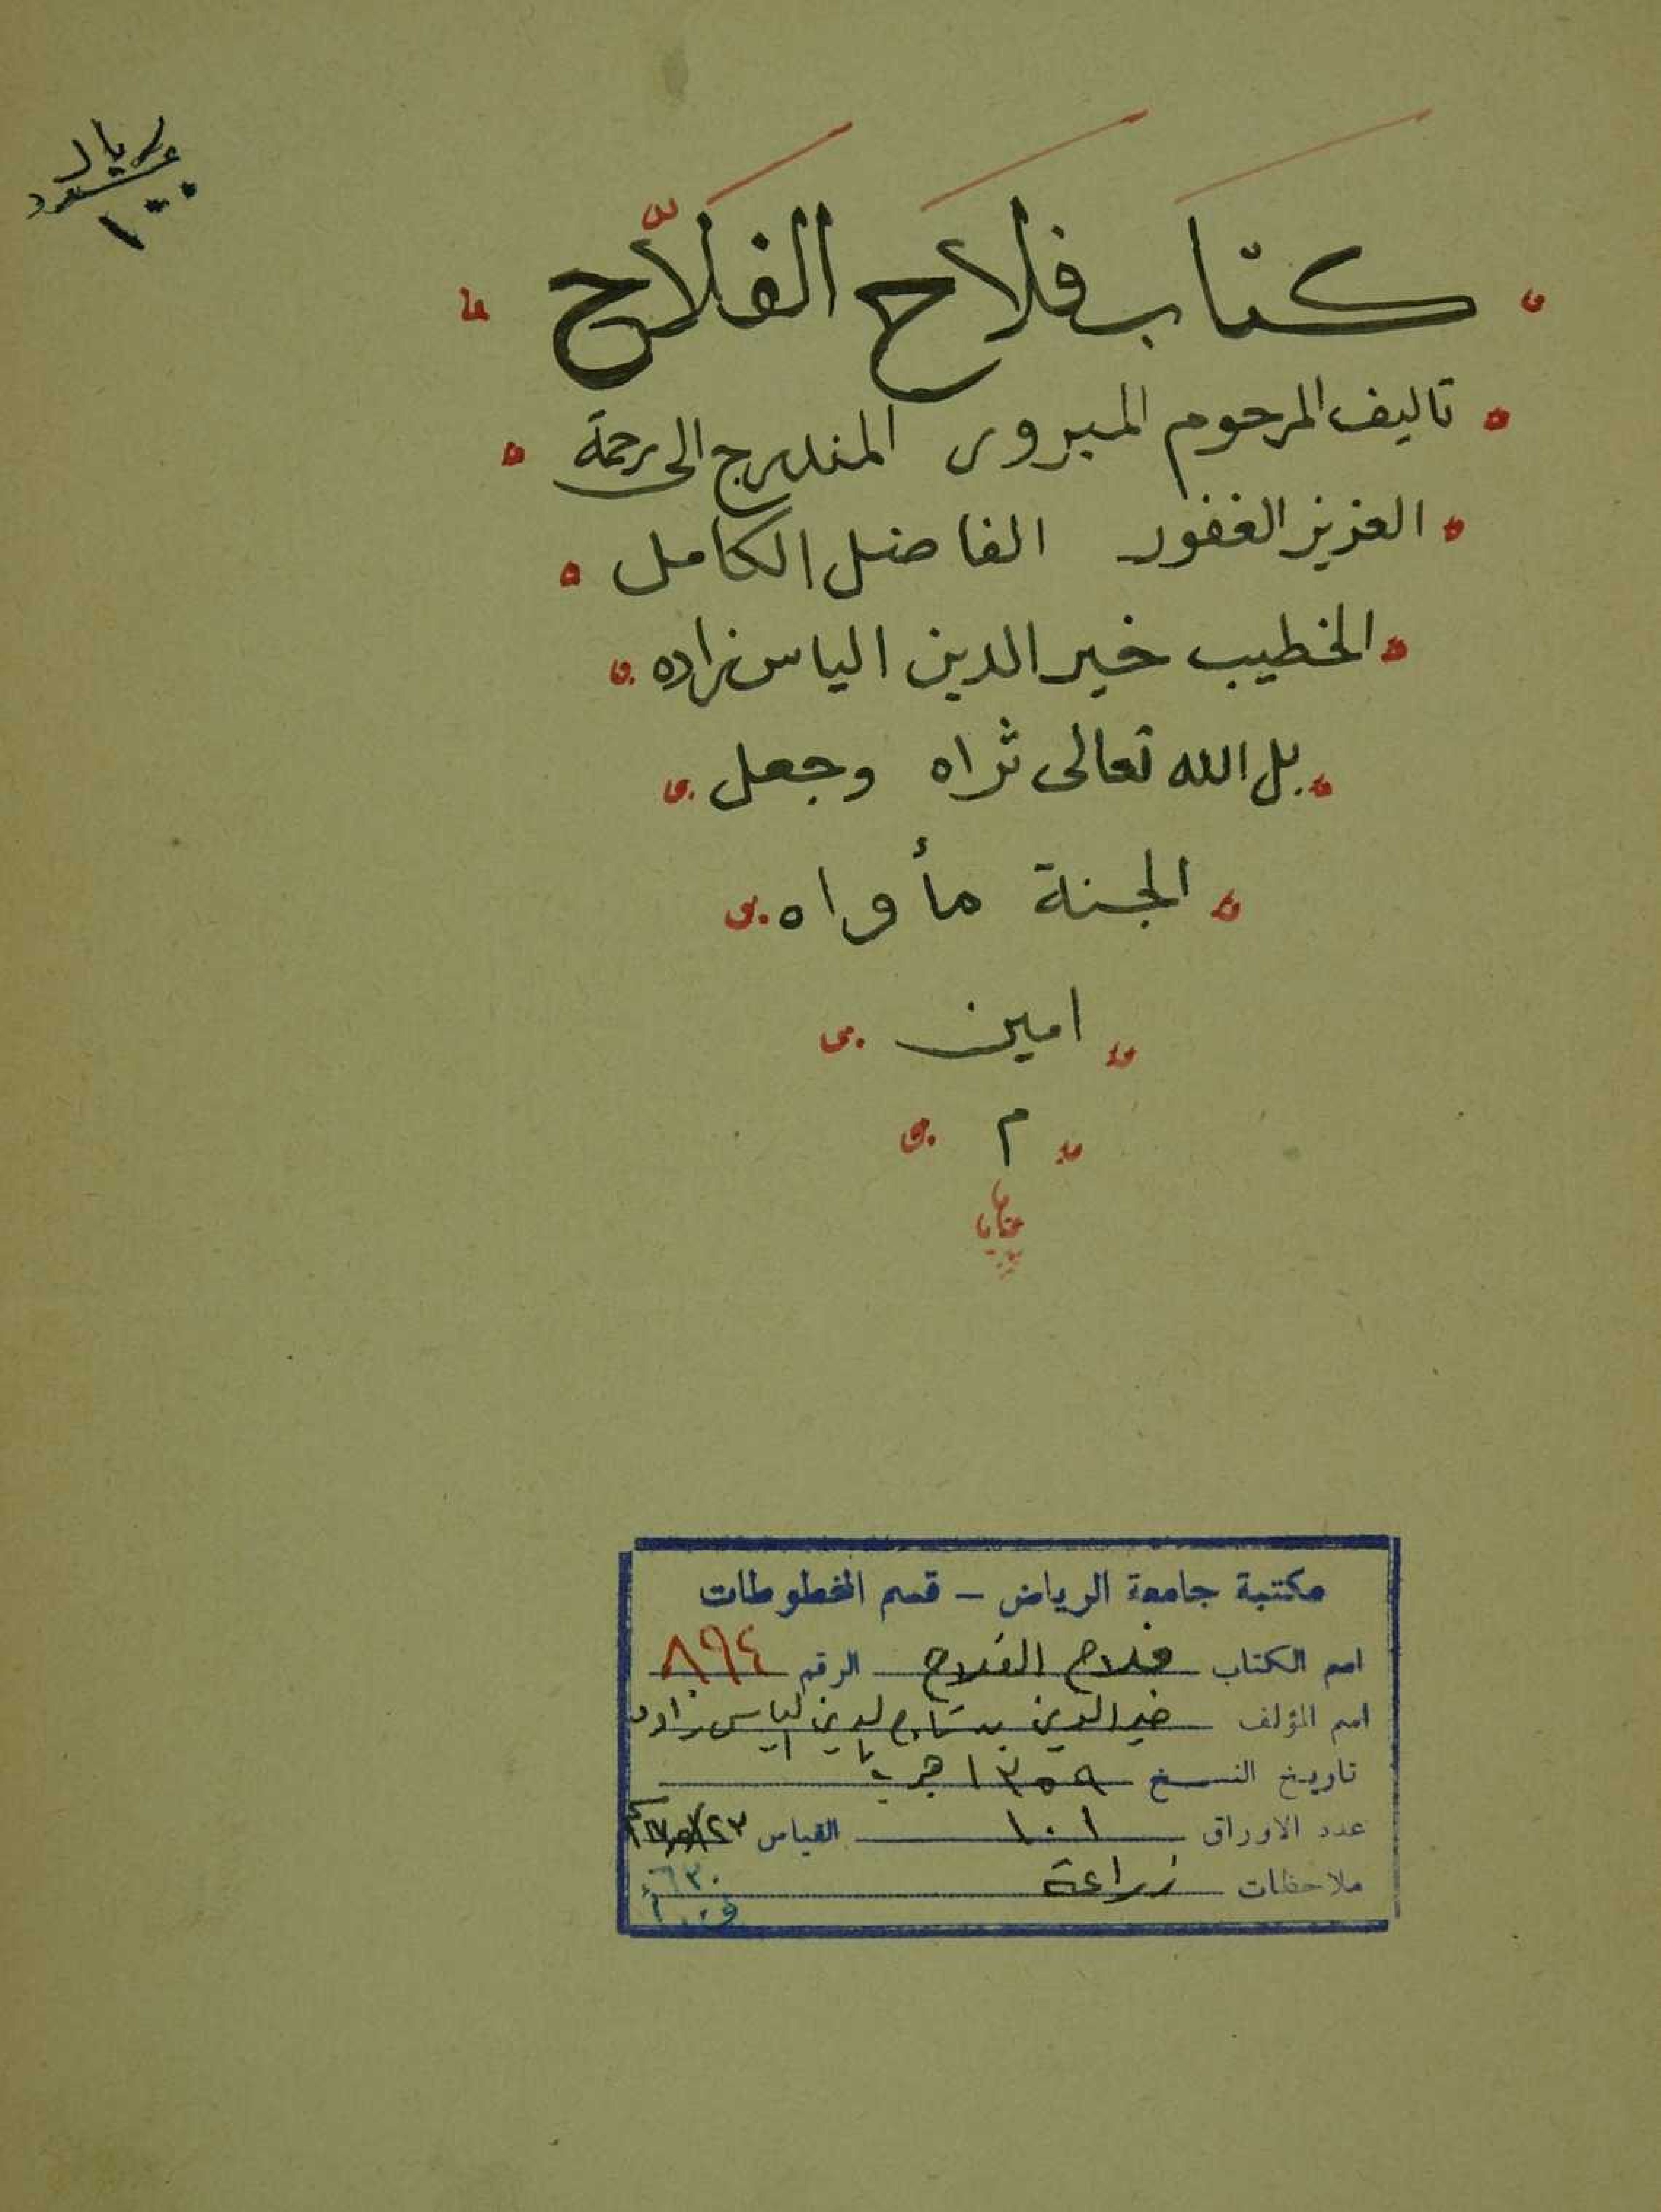 ريال
١٠٠
كتاب فلاح الفلاّح
تاليف المرحوم المبرور المندرج الى رحمة
العزيز الغفور الفاضل الكامل
الخطيب خير الدين الياس زاده
بل الله تعالى ثراه وجعل
الجنة مأواه
امين
م
مكتبة جامعة الرياض - قسم المخطوطات
اسم الكتاب فلاح الفلاح الرقم ٨٩٤
اسم المؤلف خير الدين بن تاج الدين الياس زاده
تاريخ النسخ ١٣٥٩
عدد الاوراق ١٠١ القياس
ملاحظات زراعة
٦٣٠